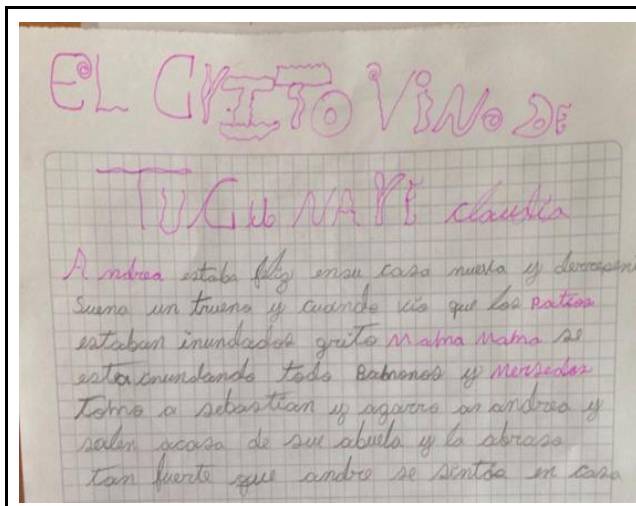 EL GRITO VINO DE
TUCUNARE claudia
Andrea estaba feliz ensu casa nueva y derrepen
Suena un trueno y cuando vio que los patios
estaban inundados grito Mama Mama se
esta inundando todo Bamonos y Mersedes
Tomo a sebastian y agarro an andrea y
salen acasa de sue abuela y la abraso
tan fuerte que andre se sintoa en casa